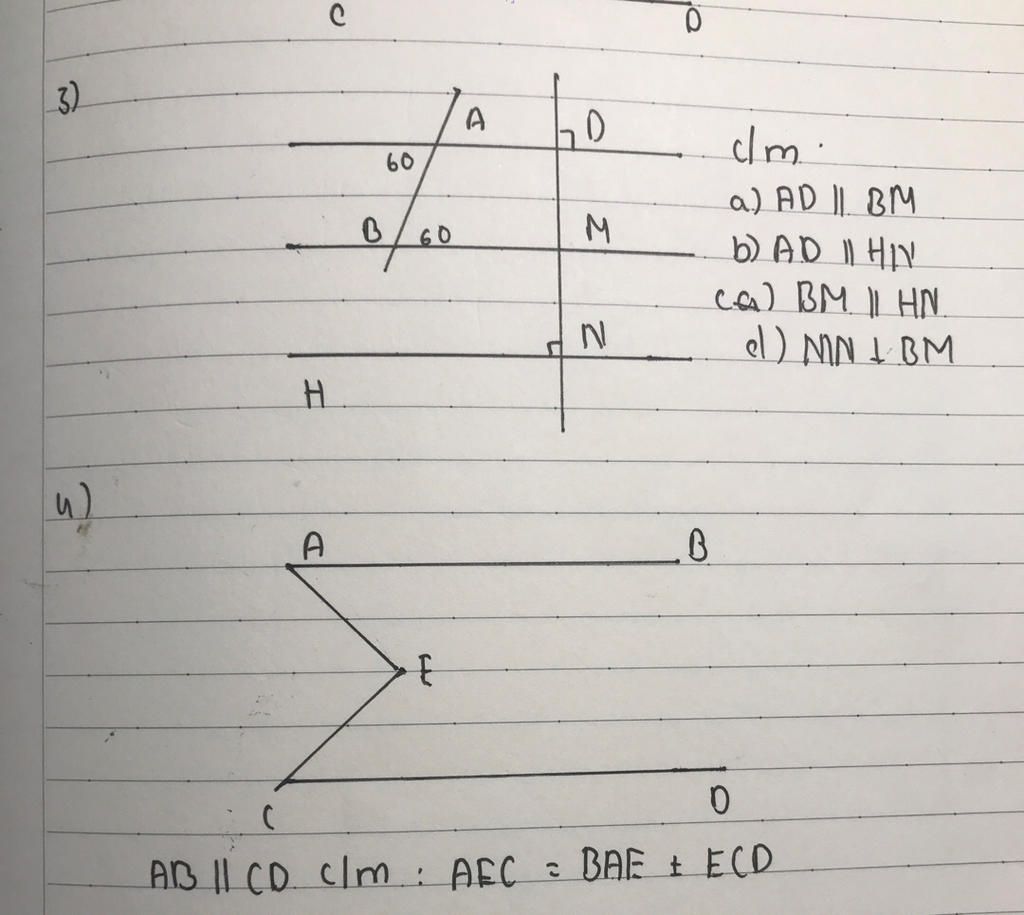 C D
3)
A
D
60
c/m.
a) AD || BM
B 60 M
b) AD || HN
c) BM || HN
N
d) MN ⊥ BM
H
4)
A B
E
C D
AB || CD. c/m : AEC = BAE ± ECD